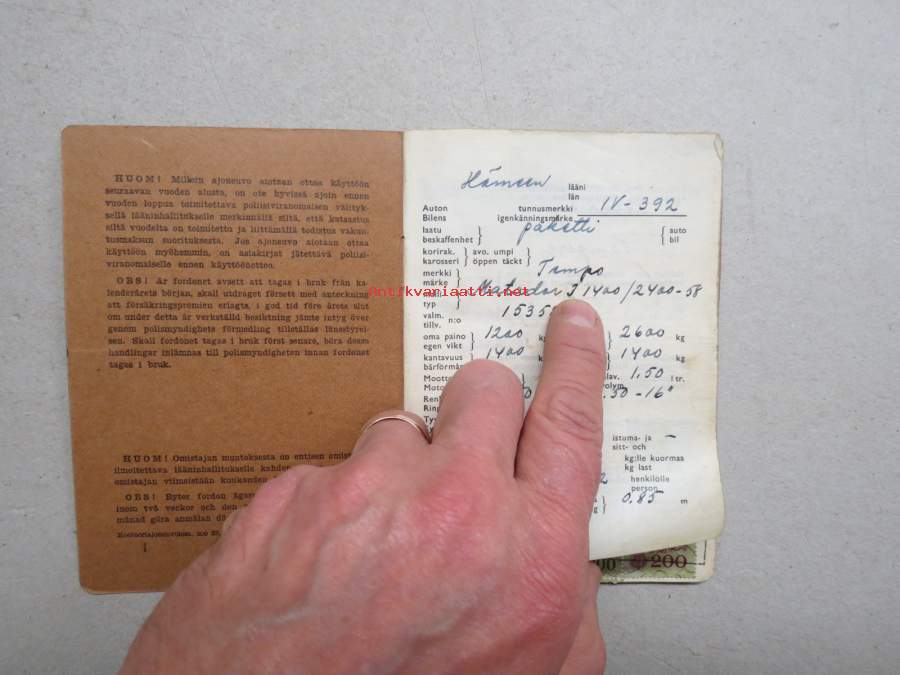 HUOM! Milloin ajoneuvo aiotaan ottaa käyttöön
seuraavan vuoden alusta, on ote hyvissä ajoin ennen
vuoden loppua toimitettava poliisiviranomaisen välityk-
sellä lääninhallitukselle merkinnällä siitä, että katsastus
siltä vuodelta on toimitettu ja liittämällä todistus vakuu-
tusmaksun suorituksesta. Jos ajoneuvo aiotaan ottaa
käyttöön myöhemmin, on asiakirjat jätettävä poliisi-
viranomaiselle ennen käyttöönottoa.
OBS! Är fordonet avsett att tagas i bruk från ka-
lenderårets början, skall utdraget försett med anteckning
att försäkringspremien erlagts, i god tid före årets slut
om under detta år verkställd besiktning jämte intyg över
genom polismyndighets förmedling tillställas länsstyrel-
sen. Skall fordonet tagas i bruk först senare, böra dessa
handlingar inlämnas till polismyndigheten innan fordonet
tages i bruk.
HUOM! Omistajan muutoksesta on entisen omist
ilmoitettava lääninhallitukselle kahden
omistajan viimeistään kuukauden
OBS! Byter fordon ägar
inom två veckor och den
månad göra anmälan då
Hämeen lääni
län
Auton tunnusmerkki IV-392
Bilens igenkänningsmärke
laatu paketti auto
beskaffenhet bil
korirak. avo. umpi
karosseri öppen täckt
merkki Tempo
märke
malli Matador I 1400/2400-58
typ
valm. 1535
tillv. n:o
oma paino 1200 kg 2600 kg
egen vikt
kantavuus 1400 1400 kg
bärförm
Moott lav. 1.50 ltr.
Moto volym
Ren .50-16"
Rin
istuma- ja –
sitt- och
kg:lle kuormaa
kg last
2 henkilölle
person
0.85 m
200
Antikvariaatti.net